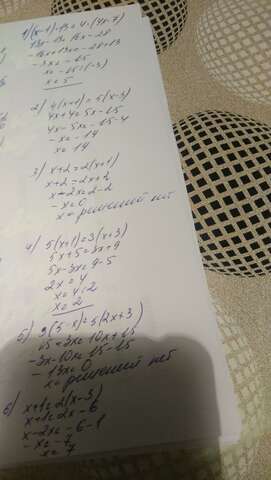 13x-13=16x-28
-16x+13x=-28+13
-3x=-15
x=-15:(-3)
x=5
2) 4(x+1)=5(x-3)
4x+4=5x-15
4x-5x=-15-4
-x=-19
x=19
3) x+2=2(x+1)
x+2=2x+2
x-2x=2-2
-x=0
x= решений нет
4) 5(x+1)=3(x+3)
5x+5=3x+9
5x-3x=9-5
2x=4
x=4:2
x=2
5) 3(5-x)=5(2x+3)
15-3x=10x+15
-3x-10x=15-15
-13x=0
x= решений нет
6) x+1=2(x-3)
x+1=2x-6
x-2x=-6-1
-x=-7
x=7